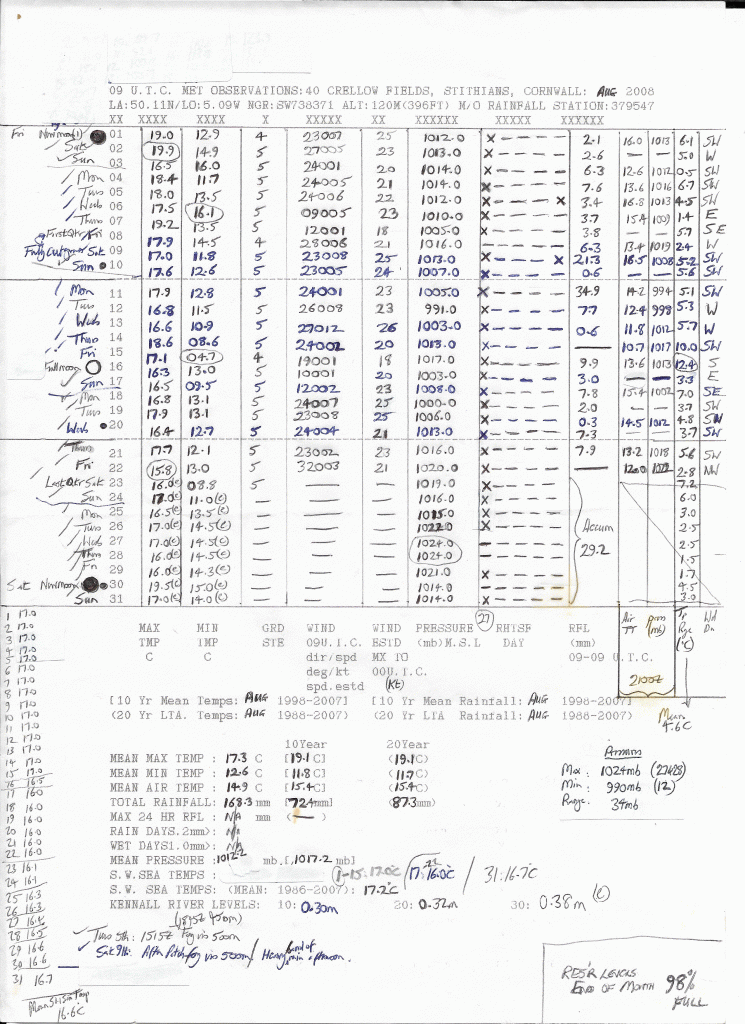 09 U.T.C. MET OBSERVATIONS:40 CRELLOW FIELDS, STITHIANS, CORNWALL: AUG 2008
LA:50.11N/LO:5.09W NGR:SW738371 ALT:120M(396FT) M/O RAINFALL STATION:379547
XX XXXX XXXX X XXXXX XX XXXXXX XXXXX XXXXXX
Fri New moon(1) 01 19.0 12.9 4 23007 25 1012.0 X---- 2.1 16.0 1013 6.1 SW
Sat 02 19.9 14.9 5 27005 23 1013.0 X---- 2.6 — — 5.0 W
Sun 03 16.5 16.0 5 24001 20 1014.0 X---- 6.3 12.6 1012 0.5 SW
Mon 04 18.4 11.7 5 24005 21 1014.0 X---- 7.6 13.6 1016 6.7 SW
Tues 05 18.0 13.5 5 24006 22 1012.0 X---X 3.4 16.8 1013 4.5 SW
Weds 06 17.5 16.1 5 09005 23 1010.0 X---- 3.7 15.4 1009 1.4 E
Thurs 07 19.2 13.5 5 12001 18 1005.0 X---- 3.8 — — 5.7 SE
First Qtr Fri 08 17.9 14.5 4 28006 21 1016.0 X---- 6.3 13.4 1019 2.4 W
Sat 09 17.0 11.8 5 23008 25 1013.0 X---- 21.3 16.5 1008 5.2 SW
Sun 10 17.6 12.6 5 23005 24 1007.0 X---- 0.6 — — 5.6 SW
Mon 11 17.9 12.8 5 24001 23 1005.0 X---- 34.9 14.2 994 5.1 SW
Tues 12 16.8 11.5 5 26008 23 991.0 X---- 7.7 12.4 998 5.3 W
Weds 13 16.6 10.9 5 27012 26 1003.0 X---- 0.6 11.8 1012 5.7 W
Thurs 14 18.6 08.6 5 24002 20 1013.0 X---- — 10.7 1017 10.0 SW
Fri 15 17.1 04.7 4 19001 18 1017.0 X---- 9.9 13.6 1013 12.4 S
Full moon 16 16.3 13.0 5 10001 20 1003.0 X---- 3.0 — — 3.3 E
Sun 17 16.5 09.5 5 12002 23 1008.0 X---- 7.8 15.4 1002 7.0 SE
Mon 18 16.8 13.1 5 24007 25 1000.0 X---- 2.0 — — 3.7 SW
Tues 19 17.9 13.1 5 23008 25 1006.0 X---- 0.3 14.5 1012 4.8 SW
Weds 20 16.4 12.7 5 24004 21 1013.0 X---- 7.3 — — 3.7 SW
Thurs 21 17.7 12.1 5 23002 23 1016.0 X---- 7.9 13.2 1018 5.6 SW
Fri 22 15.8 13.0 5 32003 21 1020.0 X---- — 12.0 1022 2.8 NW
Last Qtr Sat 23 16.0(e) 08.8 5 — — 1019.0 X---- 7.2
Sun 24 17.0(e) 11.0(e) — — — 1016.0 X---- 6.0
Mon 25 16.5(e) 13.5(e) — — — 1015.0 X---- 3.0
Tues 26 17.0(e) 14.5(e) — — — 1022.0 X---- Accum 2.5
Weds 27 17.0(e) 14.5(e) — — — 1024.0 ----- 29.2 2.5
Thurs 28 16.0(e) 14.5(e) — — — 1024.0 ----- 1.5
Fri 29 16.0(e) 14.3(e) — — — 1021.0 X---- 1.7
Sat New Moon 30 19.5(e) 15.0(e) — — — 1014.0 X---- 4.5
Sun 31 17.0(e) 14.0(e) — — — 1014.0 X---- 3.0
(27)
MAX MIN GRD WIND WIND PRESSURE RHTSF RFL Air press Tp Wd
TMP TMP STE 09U.T.C. ESTD (mb)M.S.L DAY (mm) TT (mb) Rge Dn
C C dir/spd MX TO 09-09 U.T.C. (°C)
deg/kt 00U.T.C.
spd.estd (Kt) 2100Z
[10 Yr Mean Temps: AUG 1998-2007] [10 Yr Mean Rainfall: AUG 1998-2007]
(20 Yr LTA. Temps: AUG 1988-2007) (20 Yr LTA Rainfall: AUG 1988-2007)
Mean 4.6C
10Year 20Year
MEAN MAX TEMP : 17.3 C [19.1C] (19.1C)
MEAN MIN TEMP : 12.6 C [11.8C] (11.7C)
MEAN AIR TEMP : 14.9 C [15.4C] (15.4C)
TOTAL RAINFALL: 168.3 mm [72.4mm] (87.3mm)
MAX 24 HR RFL : N/A mm (—)
RAIN DAYS.2mm>: N/A
WET DAYS1.0mm>: N/A
MEAN PRESSURE: 1012.2 mb.[1017.2 mb]
Max: 1024mb (27&28)
Min: 990mb (12)
Range: 34mb
S.W. SEA TEMPS : 1-15:17.0°C / 17-23 16.0°C / 31:16.7°C
S.W. SEA TEMPS: (MEAN: 1986-2007): 17.2°C
KENNALL RIVER LEVELS: 10: 0.30m 20: 0.32m 30: 0.38m (e)
(1845Z 450m)
Tues 5th: 1515Z Fog vis 500m
Sat 9th: Aftn Patch fog vis 500m / Heavy band of rain afternoon.
1 17.0
2 17.0
3 17.0
4 17.0
5 17.0
6 17.0
7 17.0
8 17.0
9 17.0
10 17.0
11 17.0
12 17.0
13 17.0
14 17.0
15 17.0
16 16.5
17 16.0
18 16.0
19 16.0
20 16.0
21 16.0
22 16.0
23 16.1
24 16.1
25 16.3
26 16.3
27 16.4
28 16.5
29 16.6
30 16.6
31 16.7
Mean SW Sea Temp
16.6C
RES'R LEVELS
END OF MONTH 98%
FULL